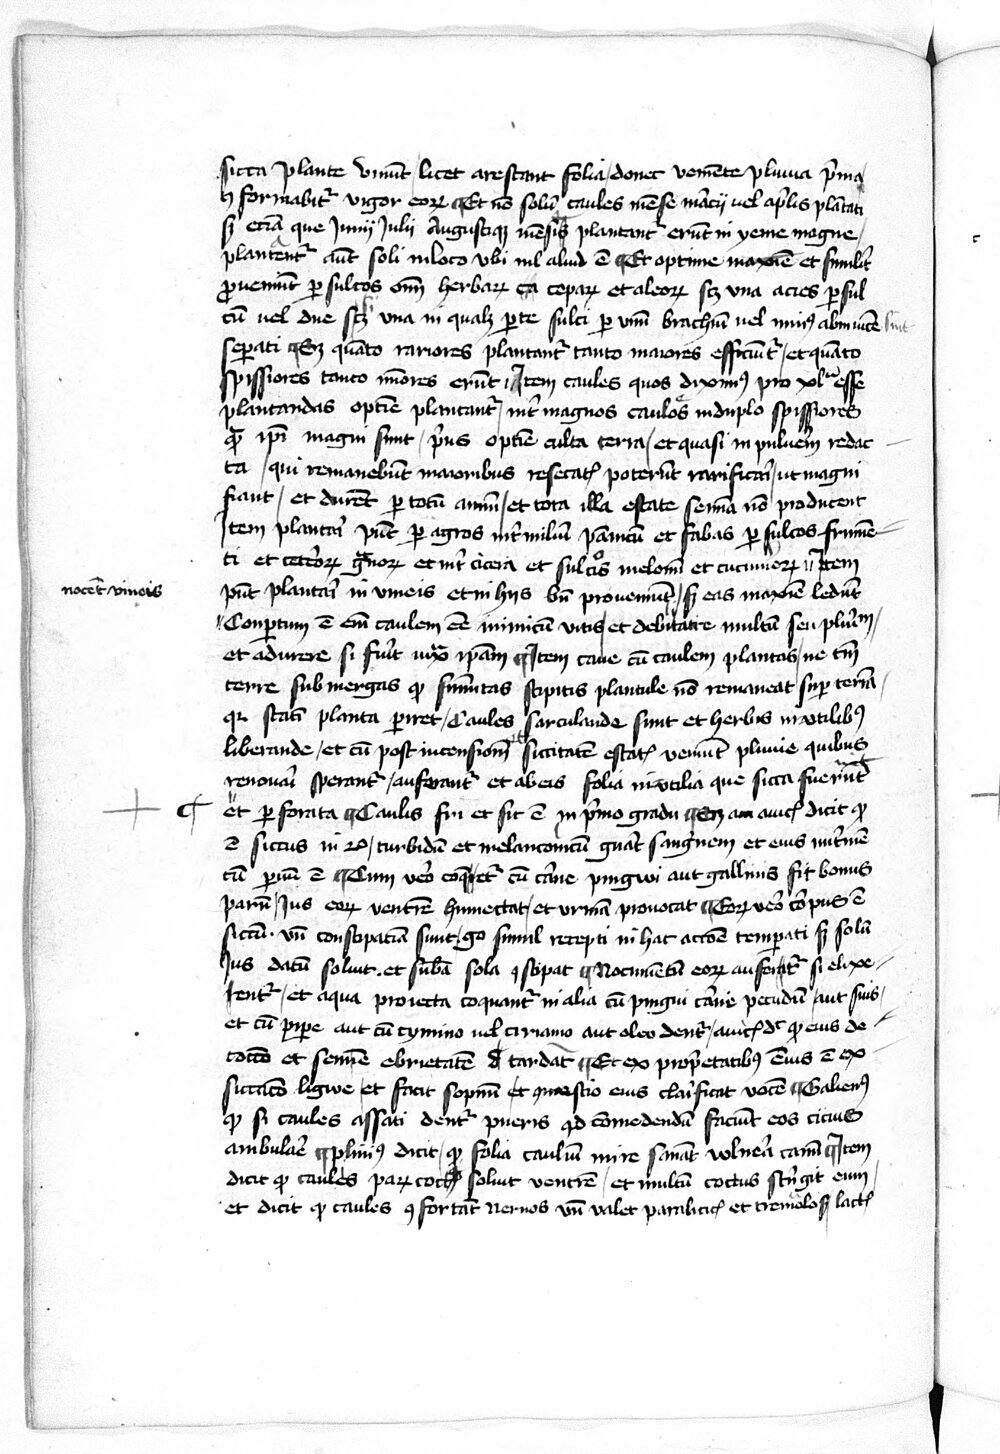 sicca plante viuunt / licet arescant folia / donec veniente pluuia p̃ma
h̵ formabit᷑ vigor eoꝝ ¶ Et nõ solũ caules mẽse m̃cij uel ap̃lis plãtati
sꝫ eciã que Junij Julij Augustiqꝫ mẽsis plantant᷑ erũt in yeme magne /
plantent᷑ aũt soli in loco vbi nil aliud ẽ ¶ Et optime maxĩe et simil᷑r
ꝓueniũt ꝑ sulcos om̃ herbaꝝ cepaꝝ et aleoꝝ scꝫ vna acies ꝑ sul
cũ uel due scꝫ vna in qualꝫ ꝑte sulci ꝑ vnũ brachiũ uel minꝰ abinuicẽ
seꝑati ¶ Et quãto rariores plantant᷑ tanto maiores efficiũt᷑ / et quãto
spissiores tanto mĩores erũt / Item caules quos diximꝰ pro xlᵃ esse
plantandas optĩe plantant᷑ / int᷑ magnos caules in duplo spissiores
qᷓ ip̃i magni sunt / p̃us optĩe culta terra / et quasi in puluerẽ redac
ta / qui remanebũt maioribus resecatꝭ poterũt rarificari / ut magni
fiant / et durẽt ꝑ totũ annũ / et tota illa estate semĩa nõ producent
Item plantari pñt ꝑ agros int᷑ miliũ pãnicũ et fabas ꝑ sulcos frumẽ
ti et ceteroꝝ gᷓnoꝝ et int᷑ cicera et sulcos melonũ et cucumeꝝ // Item
pñt plantari in vineis et in hijs bñ proueniunt / sꝫ eas maxĩe ledũt
nocẽt vineis
Conꝑtum ẽ em̃ caulem eẽ inimicũ vitis / et debilitare multũ seu plur̃m /
et adurere si fuẽit iuxᵃ ip̃am ¶ Item caue cũ caulem plantas / ne tm̃
terre submergas qꝙ sum̃itas stipitis plantule nõ remaneat suꝑ terrã /
qꝛ statĩ planta ꝑiret / Caules sarculande sunt et herbis inutilibꝰ
liberande / et cũ post incensionẽ siccitatẽ estatꝭ veniũt pluuie quibus
renouari sperant᷑ / auferant᷑ et abeis folia inutilia que sicca fuerũt
et ꝑforata ¶ Caulis fri et sic ẽ in p̃mo gradu ¶ Et auicꝭ dicit ꝙ
ẽ siccus in 2º / turbidũ et melancolicũ gen̾at sanguinem et eius nut᷑mẽ
tũ ꝑuũ ẽ ¶ Cum uẽo coqⁱt᷑ cũ carne pingwi aut gallinis fit bonus
parũ / Jus eoꝝ ventrẽ humectat / et vrinã prouocat ¶ Eoꝝ uẽo corpus ẽ
siccũ. vñ constipatĩa sunt. go simul recepti in hac actõe temꝑati sꝫ solũ
Jus datũ soluit. et subã sola ꝯstipat ¶ Nocumẽtũ eoꝝ aufert᷑ si elixe
rent᷑ / et aqua proiecta coquant᷑ in alia cũ pingui carne pecudũ / aut suis /
et cũ pipe aut cũ cymino uel aut oleo dent᷑ / auicꝭ dt ꝙ eius de
coccõ et semẽ ebrietatẽ tardat ¶ Et ex proprietatibꝰ eius ẽ ex
siccacõ ligwe / et facit sopnũ / et eius clarificat vocẽ ¶ Galienꝰ
ꝙ si caules assati dent᷑ pueris ad comedendũ faciũt eos cicius
ambulare ¶ pliniꝰ dicit / ꝙ folia cauliũ mire sanãt vulnera canũ ¶ Item
dicit ꝙ caules parꝝ cocti soluit ventrẽ / et multũ coctus stringit eum /
et dicit ꝙ caules ꝯfortãt neruos vñ valet paraliticꝭ et tremulosꝭ lactꝭ